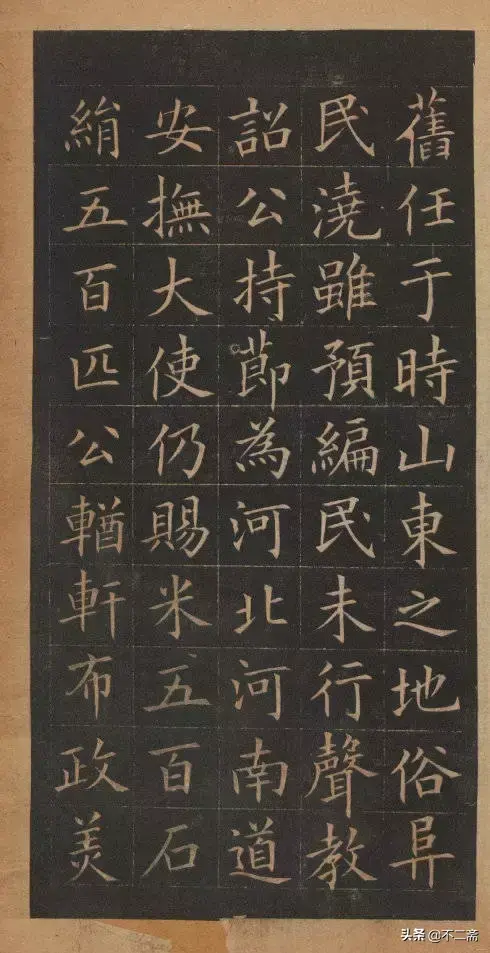 舊任于時山東之地俗阜
民澆雖預編民未行聲教
詔公持莭為河北河南道
安撫大使仍賜米五百石
絹五百匹公輶軒布政美
头条@不二斋